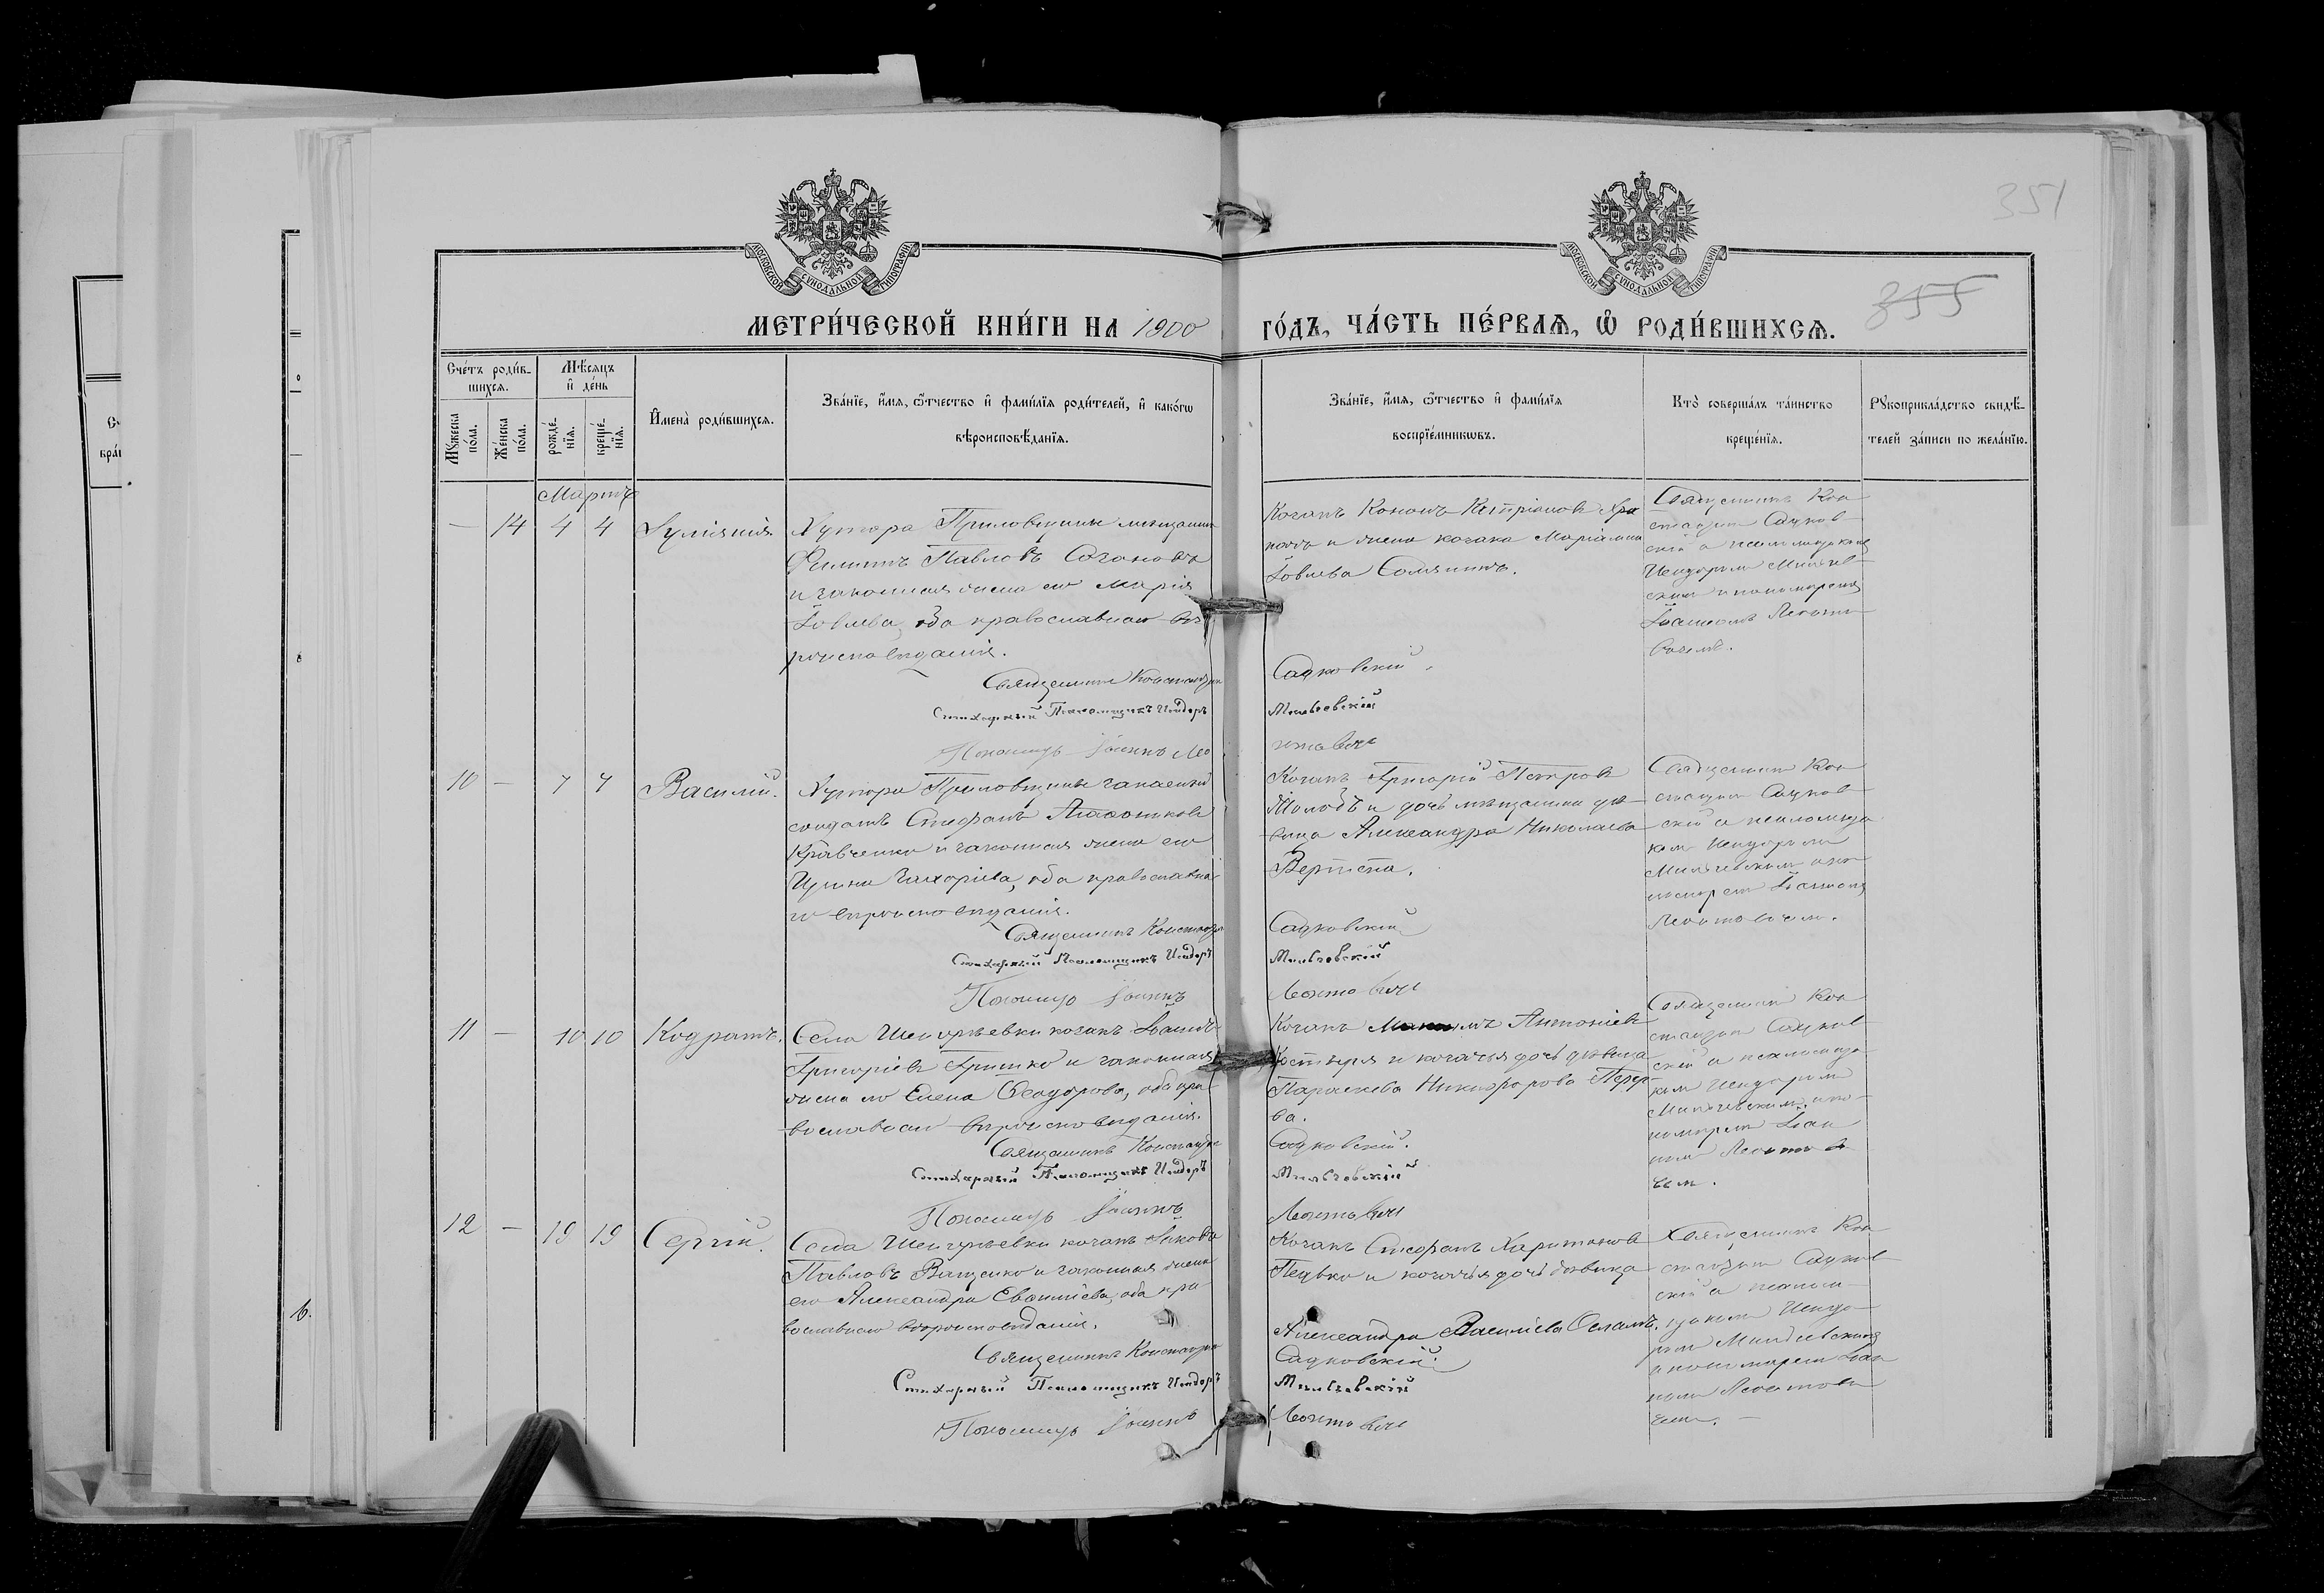 351
355
МОСКОВСКОЙ СѴНОДАЛЬНОЙ ТИПОГРАФІИ
МОСКОВСКОЙ СѴНОДАЛЬНОЙ ТИПОГРАФІИ
МЕТРИ́ЧЕСКОЙ КНИ́ГИ НА 1900 ГО́ДЪ, ЧА́СТЬ ПЕ́РВАѦ, Ѽ РОДИ́ВШИХСѦ.
Сче́тъ роди́в-
шихсѧ.
Мꙋ́жеска по́ла.
Же́нска по́ла.
Мѣ́сѧцъ
и҆ де́нь
рожде́-
нїѧ.
креще́-
нїѧ.
И҆мена̀ роди́вшихсѧ.
Зва́нїе, и҆́мѧ, ѻ҆́тчество и҆ фами́лїѧ роди́телей, и҆ како́гѡ
вѣроисповѣ́данїѧ.
Зва́нїе, и҆́мѧ, ѻ҆́тчество и҆ фами́лїѧ
воспрїе́мникѡвъ.
Кто̀ соверша́лъ та́инство
креще́нїѧ.
Рꙋкоприкла́дство свидѣ́-
телей за́писи по жела́нїю.
Мартъ
— 14 4 4
Хутора Приловщины мѣщанинъ
Филиппъ Павловъ
и законная жена его Марія
Іовлева, оба православнаго вѣ-
роисповѣданія.
Священникъ Констант
Стихарный Псаломщикъ Исидоръ
Пономарь Іоаннъ Лео
Козакъ Кононъ
и жена козака
Іовлева
Садковскій
Мильгевскій
нтовичъ
Священникъ Кон
стантин Садков-
скій с псаломщиком
Исидором
и пономарем
Іоанном Леонто-
вичем.
10 — 7 7 Василій.
Хутора Приловщины запасный
солдатъ Стефанъ
Кравченко и законная жена его
Ирина Захаріева, оба православна-
го вѣроисповѣданія.
Священникъ Констант
Стихарный Псаломщикъ Исидоръ
Пономарь Іоаннъ
Козакъ Григорій Петровъ
и дочь мѣщанина дѣ-
вица Александра Николаева
Садковскій
Мильгевскій
Леонтовичъ
Священник Кон
стантин Садков-
скій с псаломщи-
ком Исидором
и по-
номарем Іоанном
Леонтовичем.
11 — 10 10 Кодратъ.
Села козакъ Іоаннъ
Григоріевъ Гришко и законная
жена его Елена Ѳеодорова, оба пра-
вославнаго вѣроисповѣданія.
Священникъ Констант
Стихарный Псаломщикъ Исидоръ
Пономарь Іоаннъ
Козакъ Антоніевъ
и козачья дочь дѣвица
Параскева Никифорова
Садковскій.
Мильгевскій
Леонтовичъ
Священник Кон
стантин Садков
скій с псаломщи-
ком Исидором
и по-
номарем Іоан
ном Леонтови
чем.
12 — 19 19 Сергій.
Села козакъ Іаковъ
Павловъ Ващенко и законная жена
его Александра Евѳиміева, оба пра-
вославнаго вѣроисповѣданія.
Священникъ Констант
Стихарный Псаломщикъ Исидоръ
Пономарь Іоаннъ
Козакъ Стефанъ Харитоновъ
и козачья дочь дѣвица
Александра Василіева
Садковскій
Мильгевскій
Леонтовичъ
Священникъ Кон
стантин Садков
скій с псалом-
щиком Исидо-
ром
и пономарем Іоан
ном Леонтови
чем. —